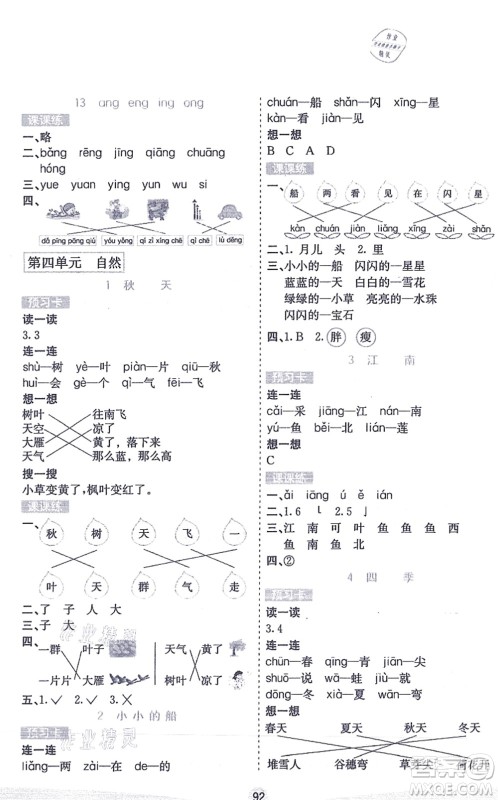 作业
精灵
13 ang eng ing ong
课课练
一、略
二、bǎng rēng jīng qiāng chuāng
hóng
三、yue yuan ying yun wu si
四、
dǎ pīng pāng qiú yóu yǒng qí zì xíng chē qì chē lù dēng
第四单元 自然
1 秋 天
预习卡
读一读
3.3
连一连
shù—树 yè—叶 piàn—片 qiū—秋
huì—会 gè—个 qì—气 fēi—飞
想一想
树叶 往南飞
天空 凉了
大雁 黄了、落下来
天气 那么蓝，那么高
搜一搜
小草变黄了，枫叶变红了。
课课练
一、秋 树 天 飞 一
叶 天 群 气 个
二、了 子 人 大
三、子 大
四、一群 叶子 天气 黄了
一片片 大雁 树叶 凉了
五、1.✓ 2.✓ 3.×
2 小小的船
预习卡
连一连
liǎng—两 zài—在 de—的
chuán—船 shǎn—闪 xīng—星
kàn—看 jiàn—见
想一想
B C A D
课课练
一、船 两 看 见 在 闪 星
kàn chuán liǎng jiàn shǎn xīng zài
二、1.月儿 头 2.里
三、小小的—船 闪闪的—星星
蓝蓝的—天 白白的—雪花
绿绿的—小草 亮亮的—水珠
闪闪的—宝石
四、1.B 2.胖 瘦
3 江 南
预习卡
连一连
cǎi—采 jiāng—江 nán—南
yú—鱼 běi—北 lián—莲
想一想
C
课课练
一、ǎi iāng ú ě ián
二、1.6 2.5
三、江 南 可 叶 鱼 鱼 鱼 西
鱼 南 鱼 北
四、②
4 四 季
预习卡
读一读
3.4
连一连
chūn—春 qīng—青 jiān—尖
shuō—说 wā—蛙 xià—夏
dōng—冬 xuě—雪 wān—弯
想一想
春天 夏天 秋天 冬天
堆雪人 谷穗弯 草芽尖 荷花开
92